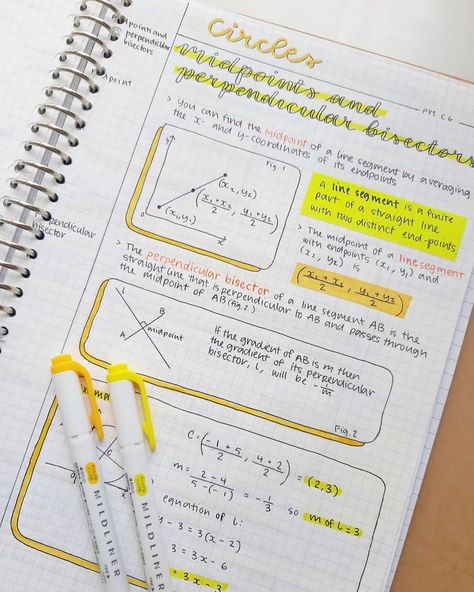 Circles
midpoints and
perpendicular bisectors
PM C6
points and
perpendicular
bisectors
point
perpendicular
bisector
> You can find the midpoint of a line segment by averaging
the x- and y-coordinates of its endpoints
Fig. 1
y
(x₂, y₂)
(x₁+x₂/2, y₁+y₂/2)
(x₁, y₁)
0
x
A line segment is a finite
part of a straight line
with two distinct end-points
> The midpoint of a line segment
with endpoints (x₁, y₁) and
(x₂, y₂) is
(x₁+x₂/2, y₁+y₂/2)
> The perpendicular bisector of a line segment AB is the
straight line that is perpendicular to AB and passes through
the midpoint of AB (Fig. 2)
L
B
A
midpoint
If the gradient of AB is m then
the gradient of its perpendicular
bisector, L, will be -1/m
Fig. 2
C = (-1+5/2, 4+2/2) = (2,3)
m = 2-4/5-(-1) = -1/3 so m of L = 3
equation of L:
y - 3 = 3(x-2)
3 = 3x-6
= 3x-3
C
MILDLINER
MILDLINER